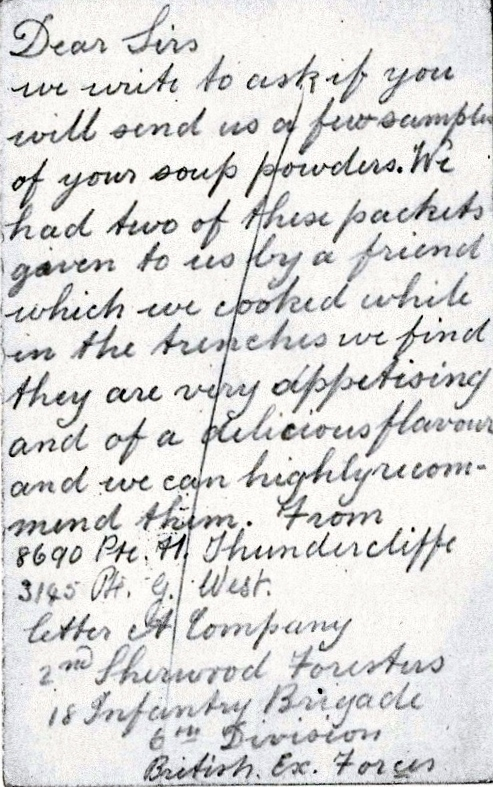 Dear Sirs
we write to ask if you
will send us a few samples
of your soup powders. We
had two of these packets
given to us by a friend
which we cooked while
in the trenches we find
they are very appetising
and of a delicious flavour
and we can highly recom-
mend them. From
8690 Pte. H. Thundercliffe
3145 Pt. G. West.
letter A Company
2nd Sherwood Foresters
18 Infantry Brigade
6th Division
British. Ex. Forces